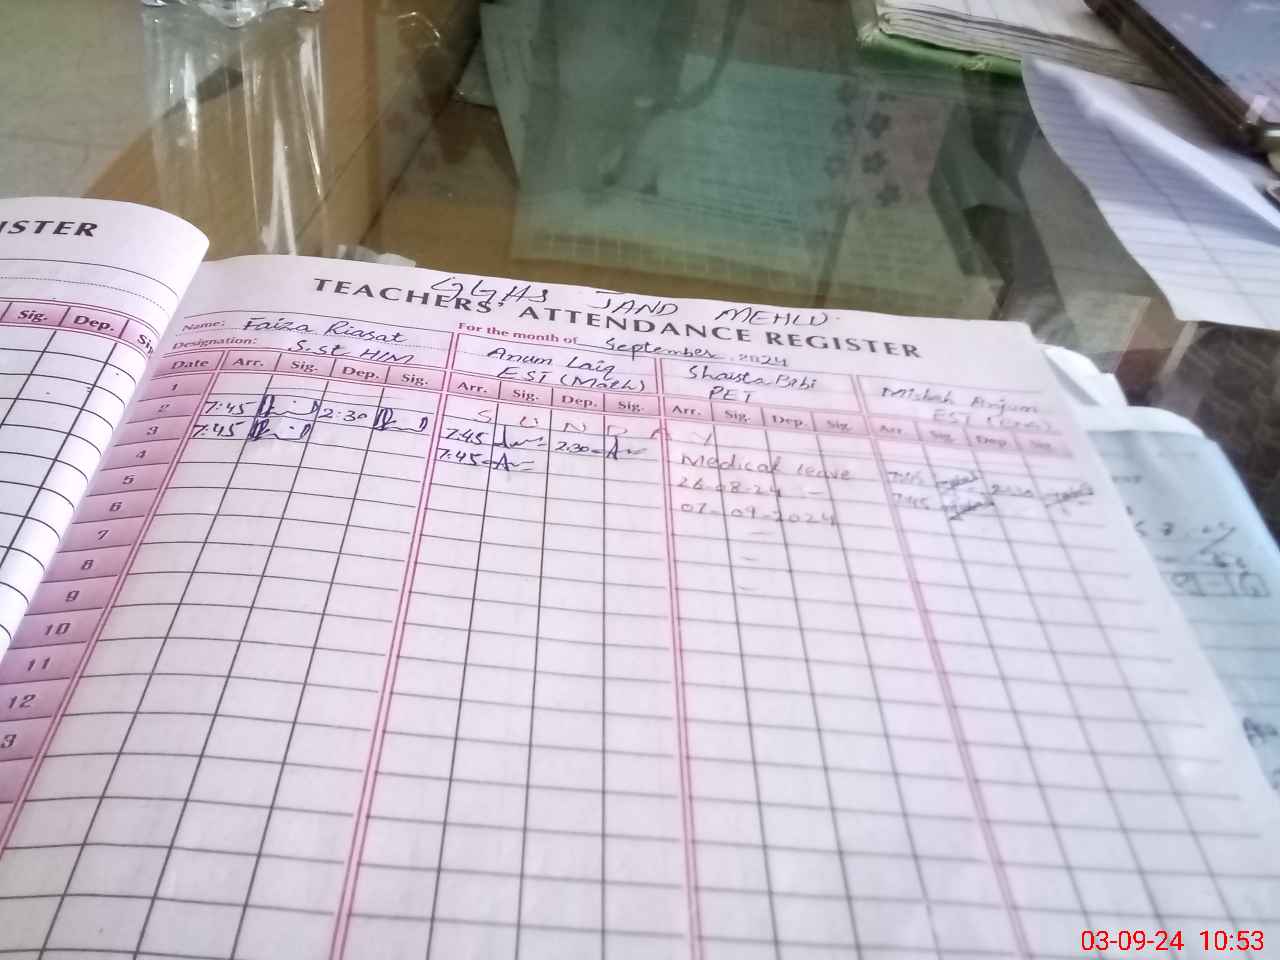 ISTER
Sig. Dep.
GGHS JAND MEHLU
TEACHERS' ATTENDANCE REGISTER
Name: Faiza Riasat
For the month of September 2024
Designation: S.St HIM
Anum Laiq
EST (Math)
Shaista Bibi
PET
Misbah Anjum
EST
Date Arr. Sig. Dep. Sig. Arr. Sig. Dep. Sig. Arr. Sig. Dep. Sig. Arr. Sig. Dep. Sig.
1 S U N D A Y
2 7:45 2:30 7:45 2:30 Medical leave 7:45 2:30
3 7:45 7:45 26-08-24 - 7:45
4 07-09-2024
5 -
6 -
7 -
8
9
10
11
12
3
03-09-24 10:53